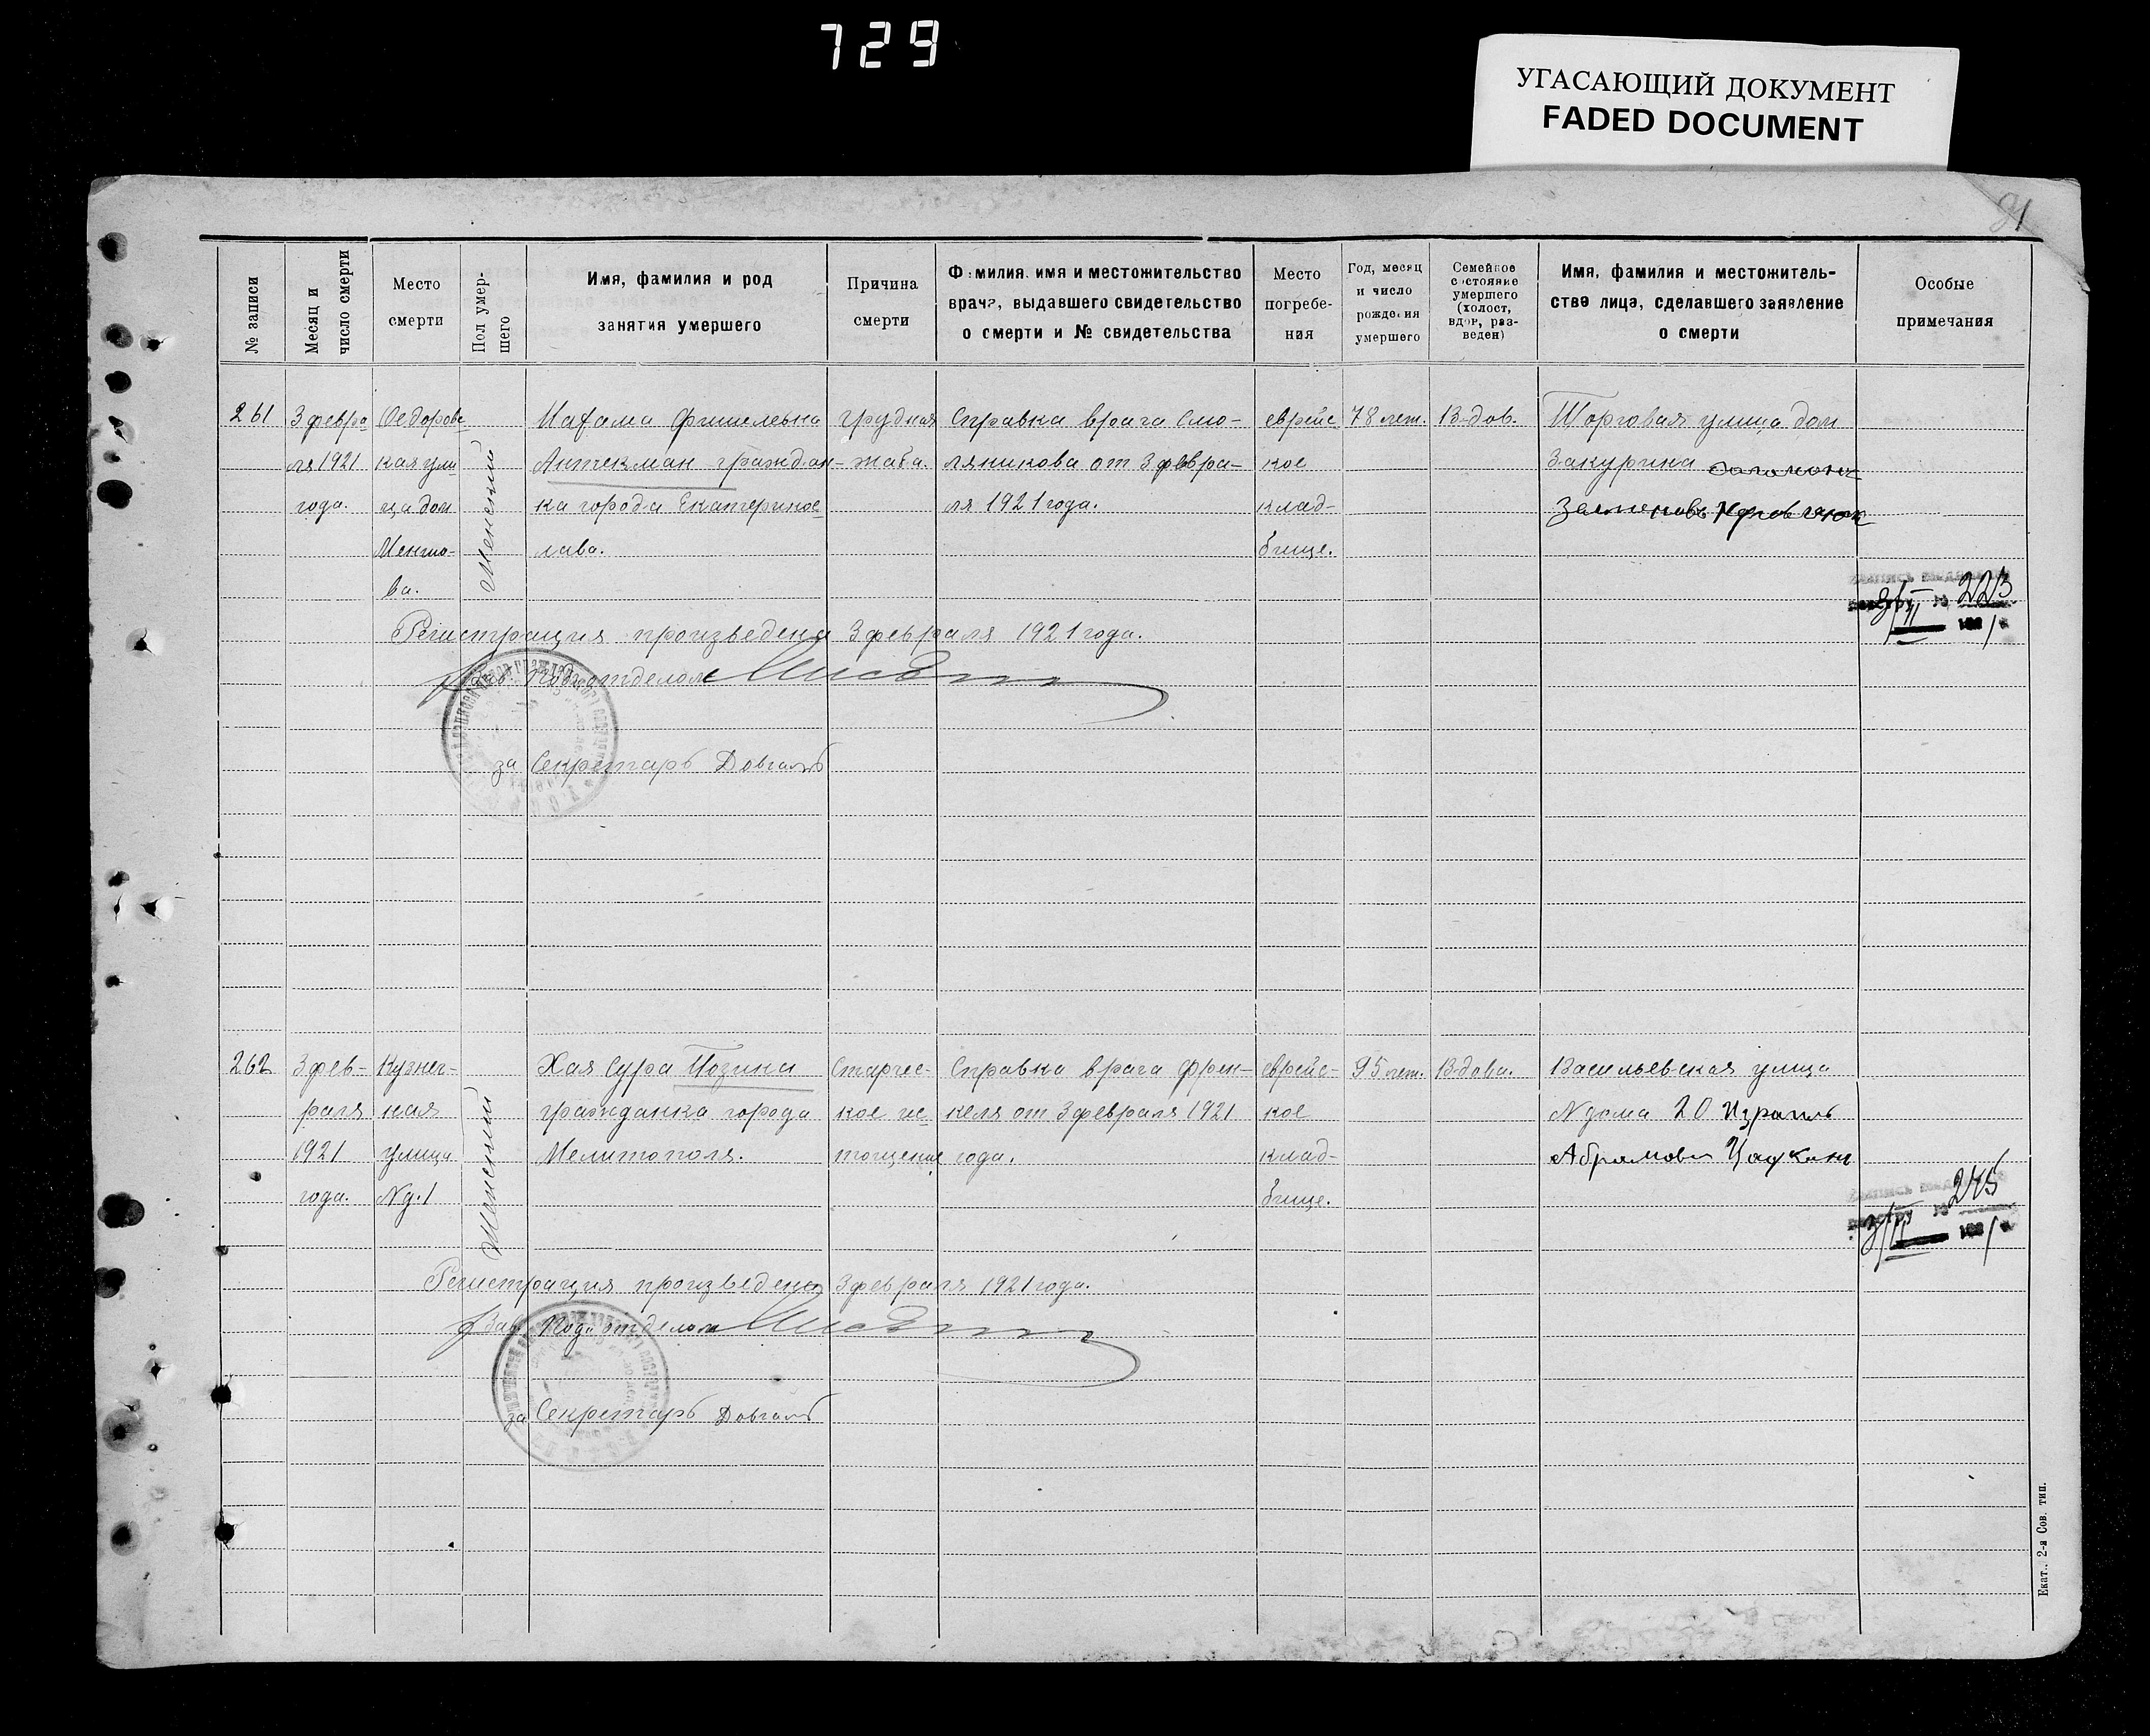 729
УГАСАЮЩИЙ ДОКУМЕНТ
FADED DOCUMENT
91
№ записи
Месяц и
число смерти
Место
смерти
Пол умер-
шего
Имя, фамилия и род
занятия умершего
Причина
смерти
Фамилия, имя и местожительство
врача, выдавшего свидетельство
о смерти и № свидетельства
Место
погребе-
ния
Год, месяц
и число
рождения
умершего
Семейное
состояние
умершего
(холост,
вдов, раз-
веден)
Имя, фамилия и местожитель-
ство лица, сделавшего заявление
о смерти
Особые
примечания
261
3 февра
ля 1921
года.
Федоровс
кая ули
ца дом
ва.
Женский
Фишелевна
Антекман граждан-
ка города Екатеринос
лава.
грудная
жаба.
Справка врача Смо-
ляникова от 3 февра-
ля 1921 года.
еврейс
кое
клад-
бище.
78 лет.
Вдов.
Торговая улица дом
Закурина
223
3/II
192 1 г.
Регистрация произведена 3 февраля 1921 года.
Зав. Подотделом
за Секретарь Довгаль
262
3 фев-
раля
1921
года.
Кузнеч-
ная
улица
№ д. 1
Женский
Хая Сура Позина
гражданка города
Мелитополя.
Старчес-
кое ис
тощение
Справка врача Френ-
келя от 3 февраля 1921
года.
еврейс-
кое
клад-
бище.
95 лет.
Вдова.
Васильевская улица
№ дома 20 Израиль
Абрамов
245
3/II
192 1 г.
Регистрация произведена 3 февраля 1921 года.
Зав. Подотделом
за Секретарь Довгаль
Екат., 2-я Сов. тип.